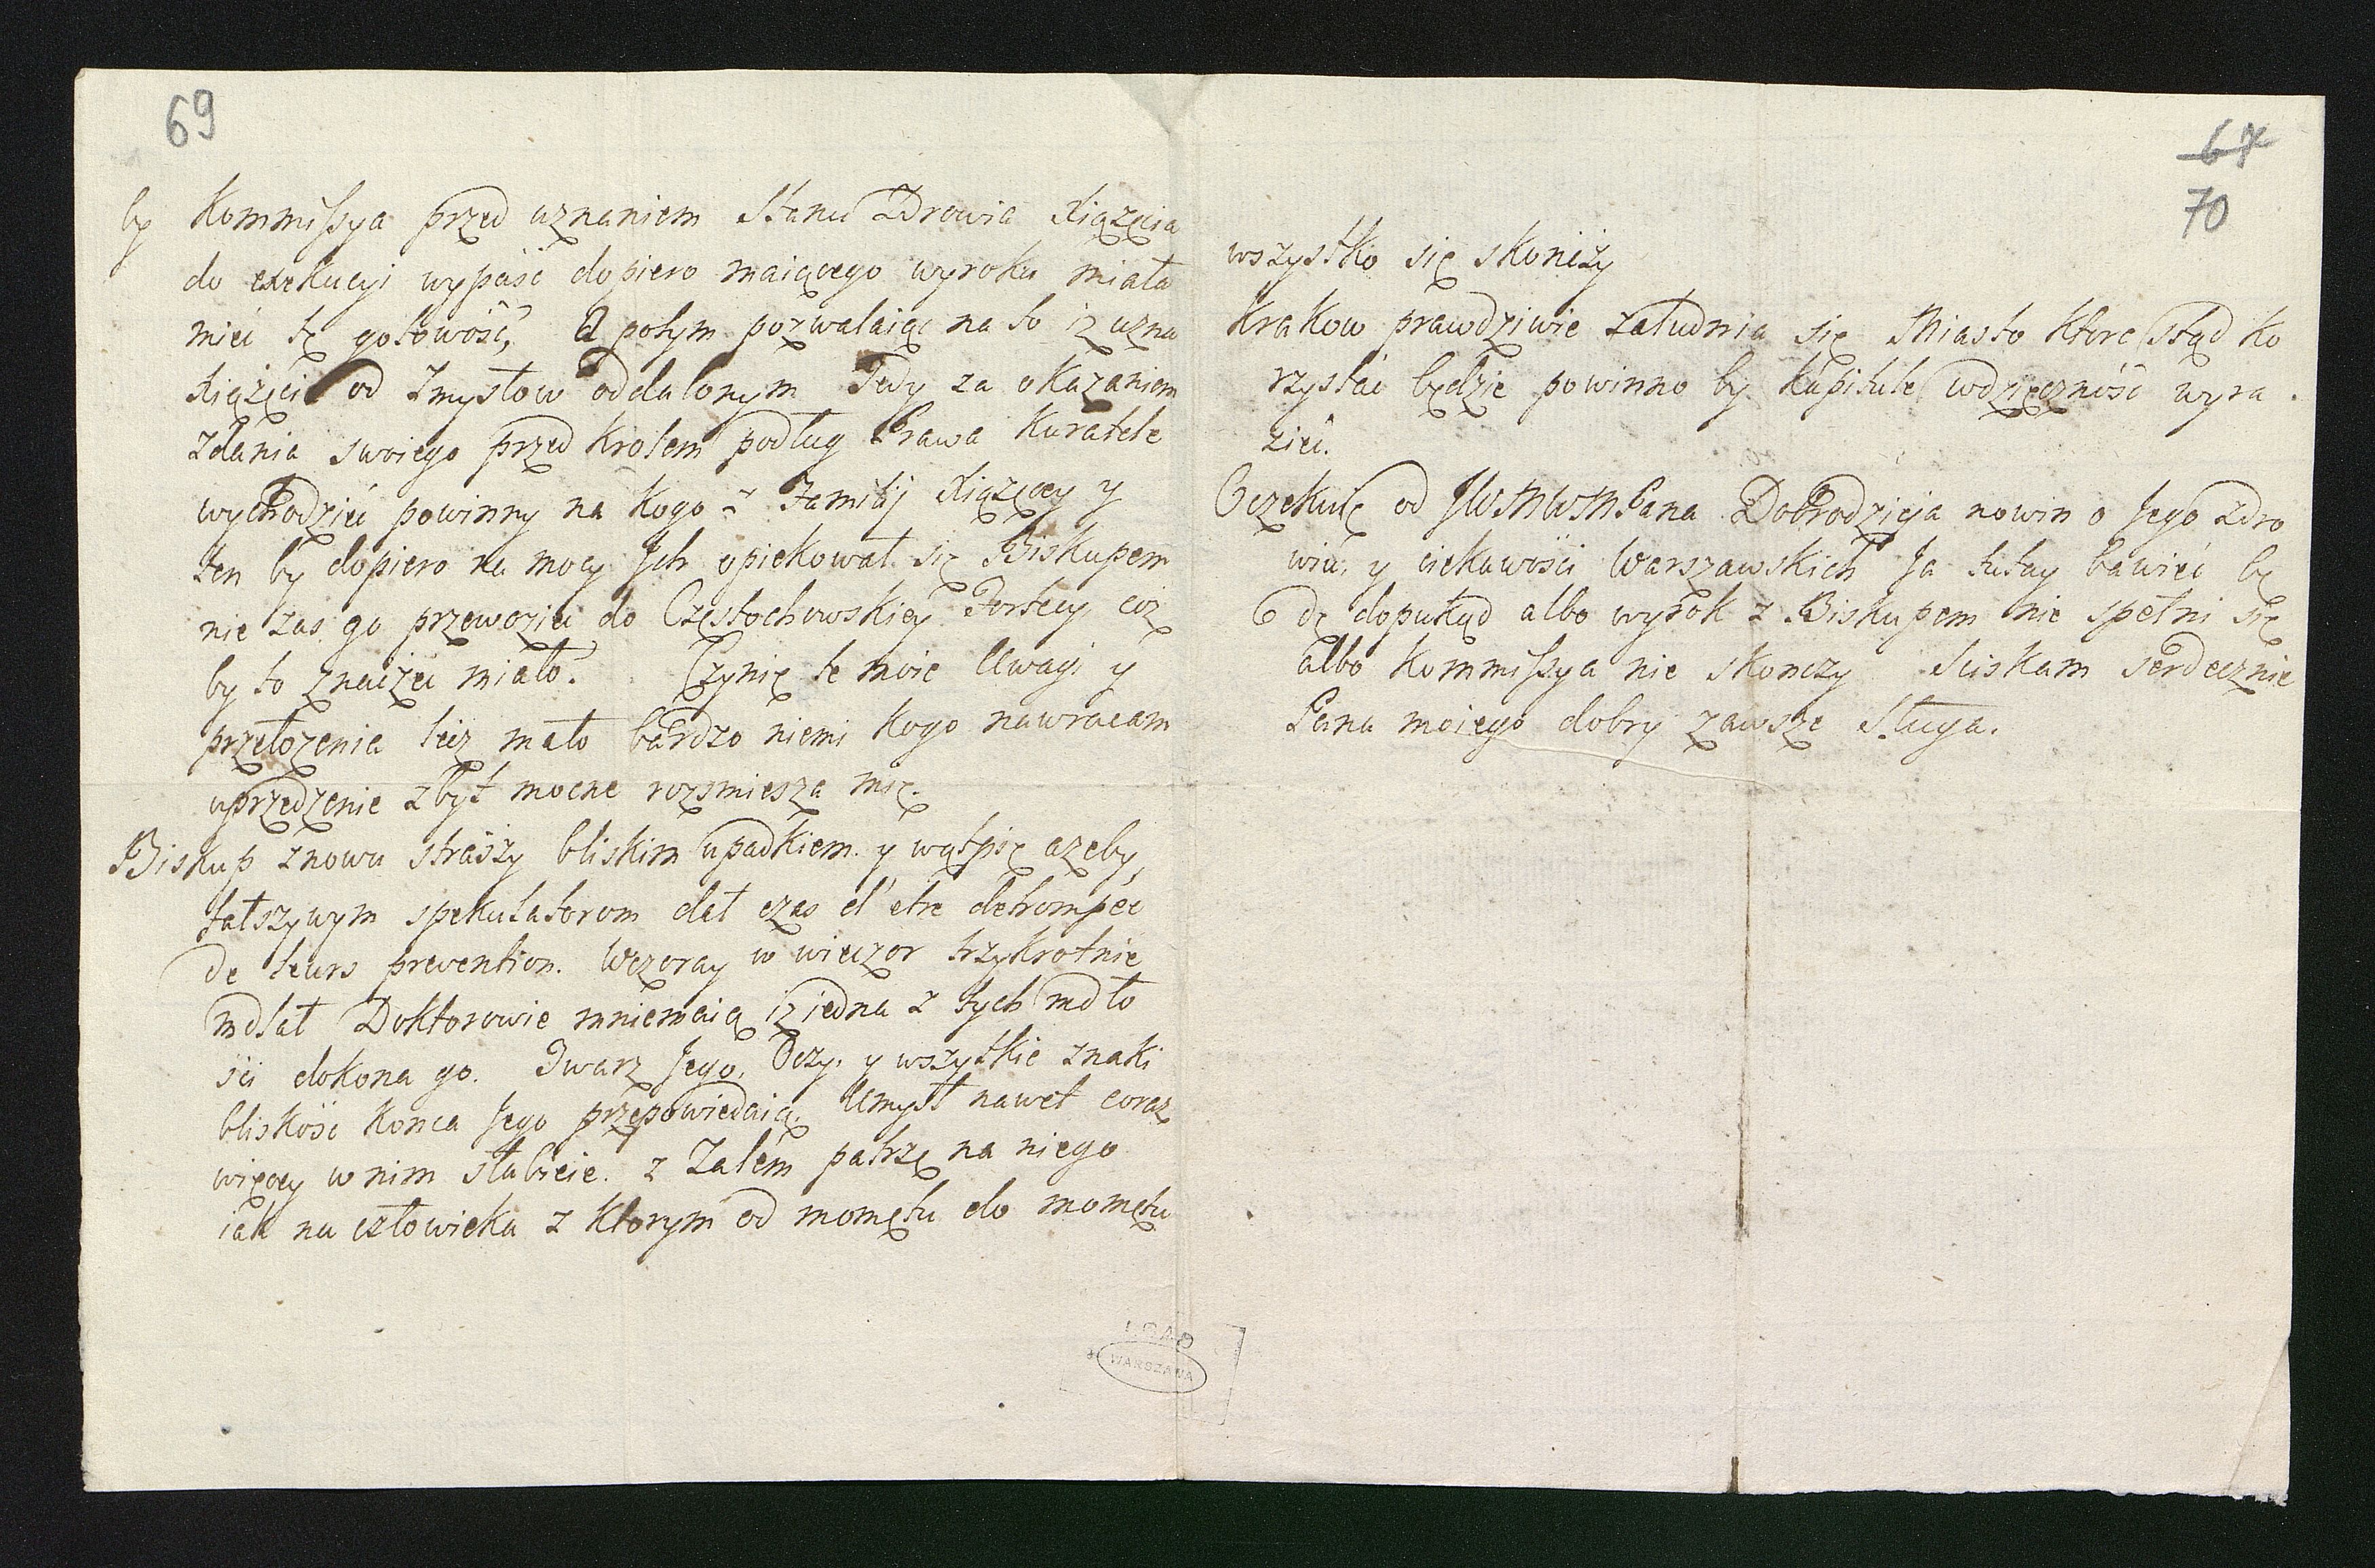 69
by Kommissya przed uznaniem Stanu Zdrowia Xiążęcia
do exekucyi wypaść dopiero maiącego wyroku miała
mieć tę gotowość, A potym pozwalaiąc na to iż uzna
Xiążęcie od Zmysłow oddalonym Tedy za okazaniem
zdania swoiego przed Krolem podług Prawa Kuratele
wychodzieć powinny na Kogo z Familij Xiążęcey y
ten by dopiero na mocy Jch opiekował się Biskupem
nie zas go przewozieć do Częstochowskiey Fortecy, coż
by to znaczeć miało? Czynię te moie Uwagi y
przełożenia lecz mało bardzo niemi Kogo nawracam
uprzedzenie zbyt mocne rozsmiesza mię.
Biskup znowu straszy bliskim upadkiem y wątpię ażeby,
fałszywym spekulatorom dał czas d'etre detrompéé
de leurs prevention. Wczoray w wieczor trzykrotnie
mdlał Doktorowie mniemaią iż iedna z tych mdło
ści dokona go. Twarz Jego, Oczy, y wszytkie znaki
bliskość Konca Jego przepowiedaią, Umysł nawet coraz
więcey w nim słabieie. z Żalem patrzę na niego
iak na człowieka z Ktorym od momętu do momętu
67
70
wszystko się skończy
Krakow prawdziwie zaludnia się Miasto ktore ztąd ko
rzystać będzie powinno by Kapitule wdzięczność wyra
zieć.
Oczekuię od JWMWMPana Dobrodzieja nowin o Jego zdro
wiu, y ciekawości Warszawskich Ja tutay bawieć bę
dę dopukąd albo wyrok z Biskupem nie spełni się
albo Kommissya nie skonczy Sciskam serdecznie
Pana moiego dobry zawsze Sługa.
WARSZAWA